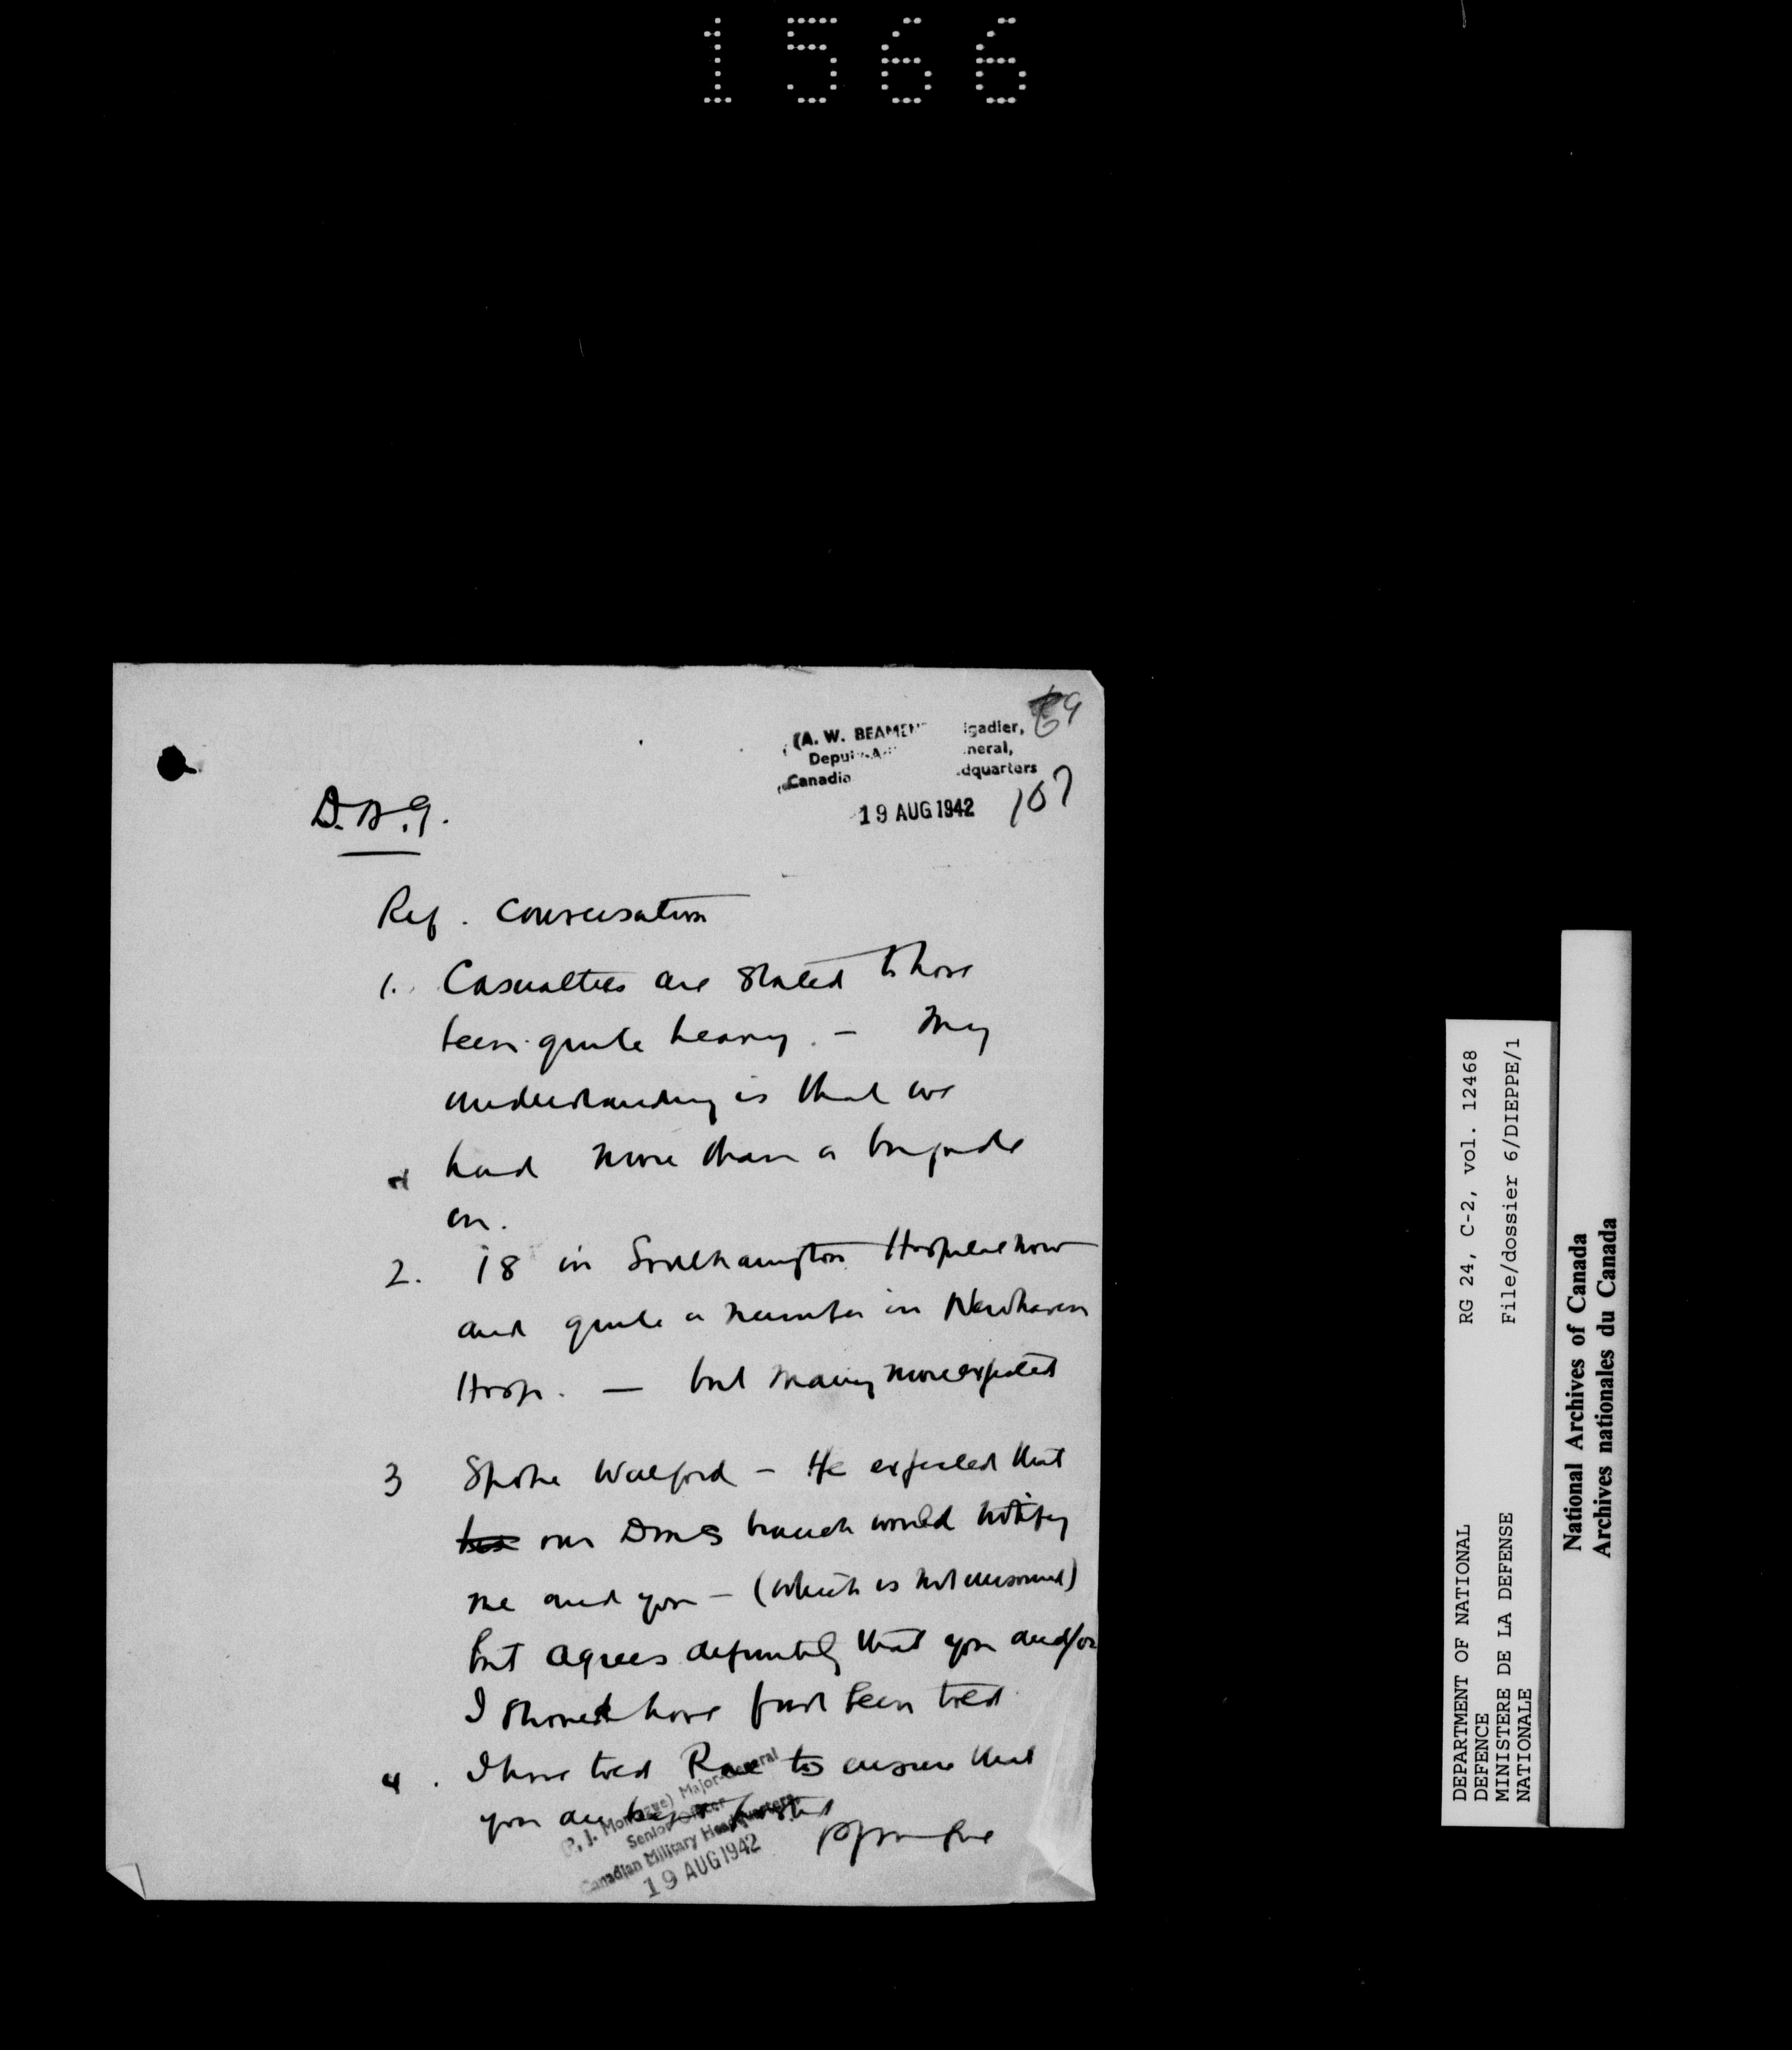 1566
69
(A. W. BEAMEN igadier,
Depu A neral,
Canadia dquarters
19 AUG 1942
107
D.A.G.
Ref. Conversation
1. Casualties are stated to have
been quite heavy. – My
understanding is that we
had more than a brigade
on.
2. 18 in Southampton Hospital now
and quite a number in Newhaven
Hosp. — but many more expected
3 Spoke Walford – He expected that
our DMS branch would notify
me and you – (which is not unsound)
but agrees definitely that you and/or
I should have first been told
4. I have told Rae to ensure that
you are kept posted
(P. J. Montague) Major-General
Senior Officer
Canadian Military Headquarters.
19 AUG 1942
DEPARTMENT OF NATIONAL
DEFENCE
MINISTERE DE LA DEFENSE
NATIONALE
RG 24, C-2, vol. 12468
File/dossier 6/DIEPPE/1
National Archives of Canada
Archives nationales du Canada